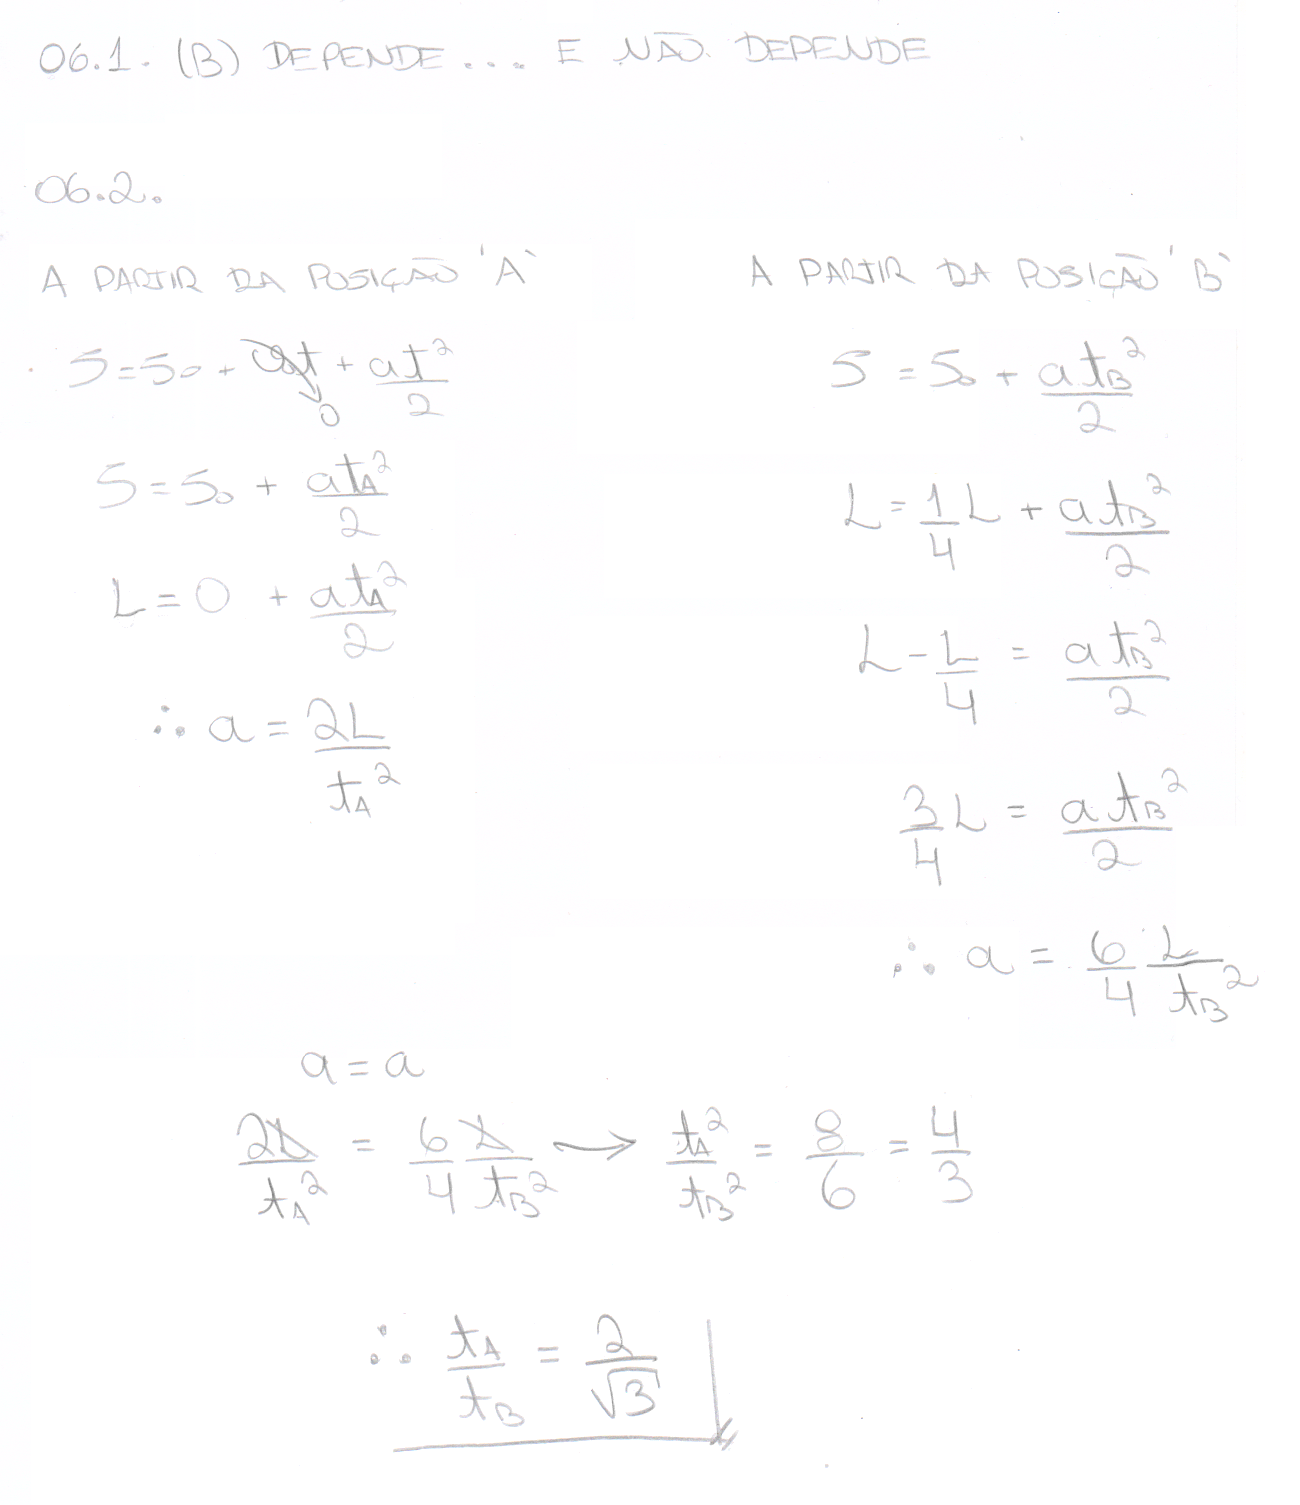 06.1. (B) DEPENDE... E NÃO DEPENDE
06.2.
A PARTIR DA POSIÇÃO 'A'
S = S0 + v0t + at²/2
0
S = S0 + atA²/2
L = 0 + atA²/2
∴ a = 2L/tA²
A PARTIR DA POSIÇÃO 'B'
S = S0 + atB²/2
L = 1/4 L + atB²/2
L - L/4 = atB²/2
3/4 L = atB²/2
∴ a = 6/4 L/tB²
a = a
2L/tA² = 6/4 L/tB² → tA²/tB² = 8/6 = 4/3
∴ tA/tB = 2/√3